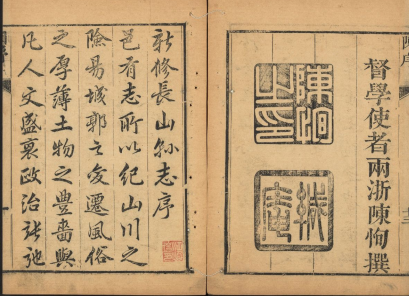 督學使者兩浙陳恂撰
陳恂
之印
新修長山縣志序
邑有志所以紀山川之
險易城郭之變遷風俗
之厚薄土物之豐嗇與
凡人文盛衰政治張弛